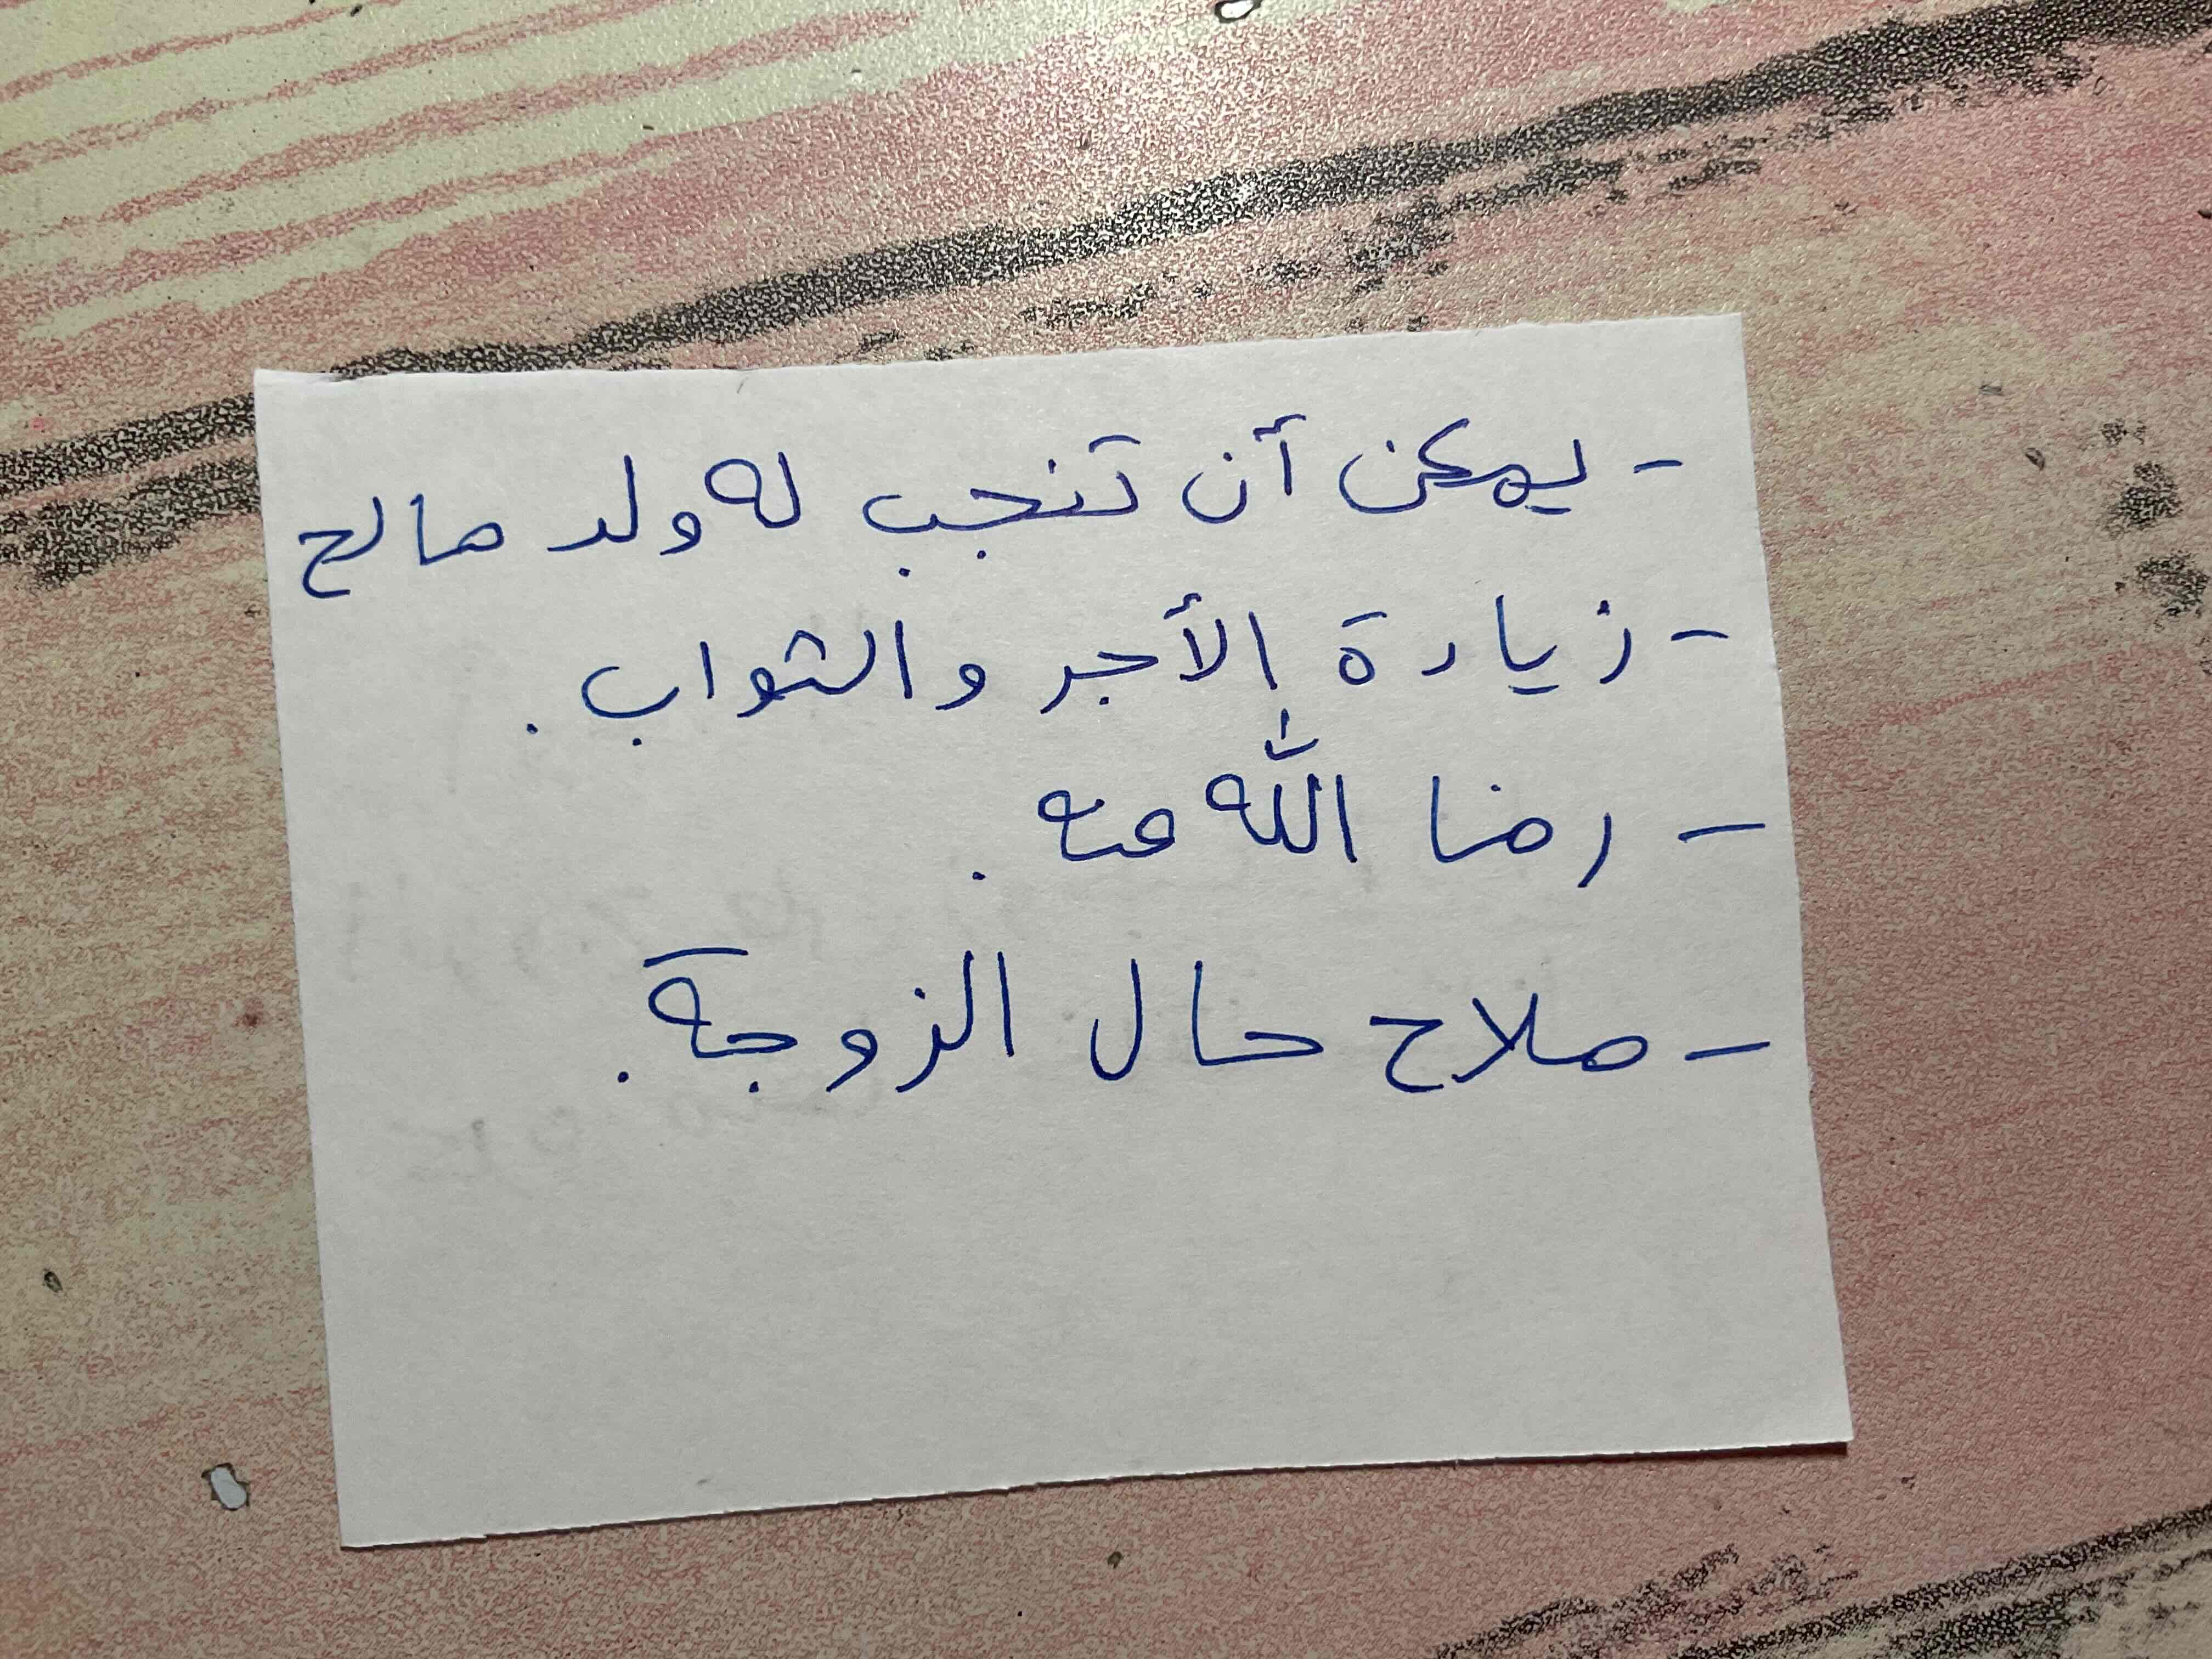 - يمكن أن تنجب له ولد صالح
- زيادة الأجر والثواب .
- رضا الله عنه .
- صلاح حال الزوجة .